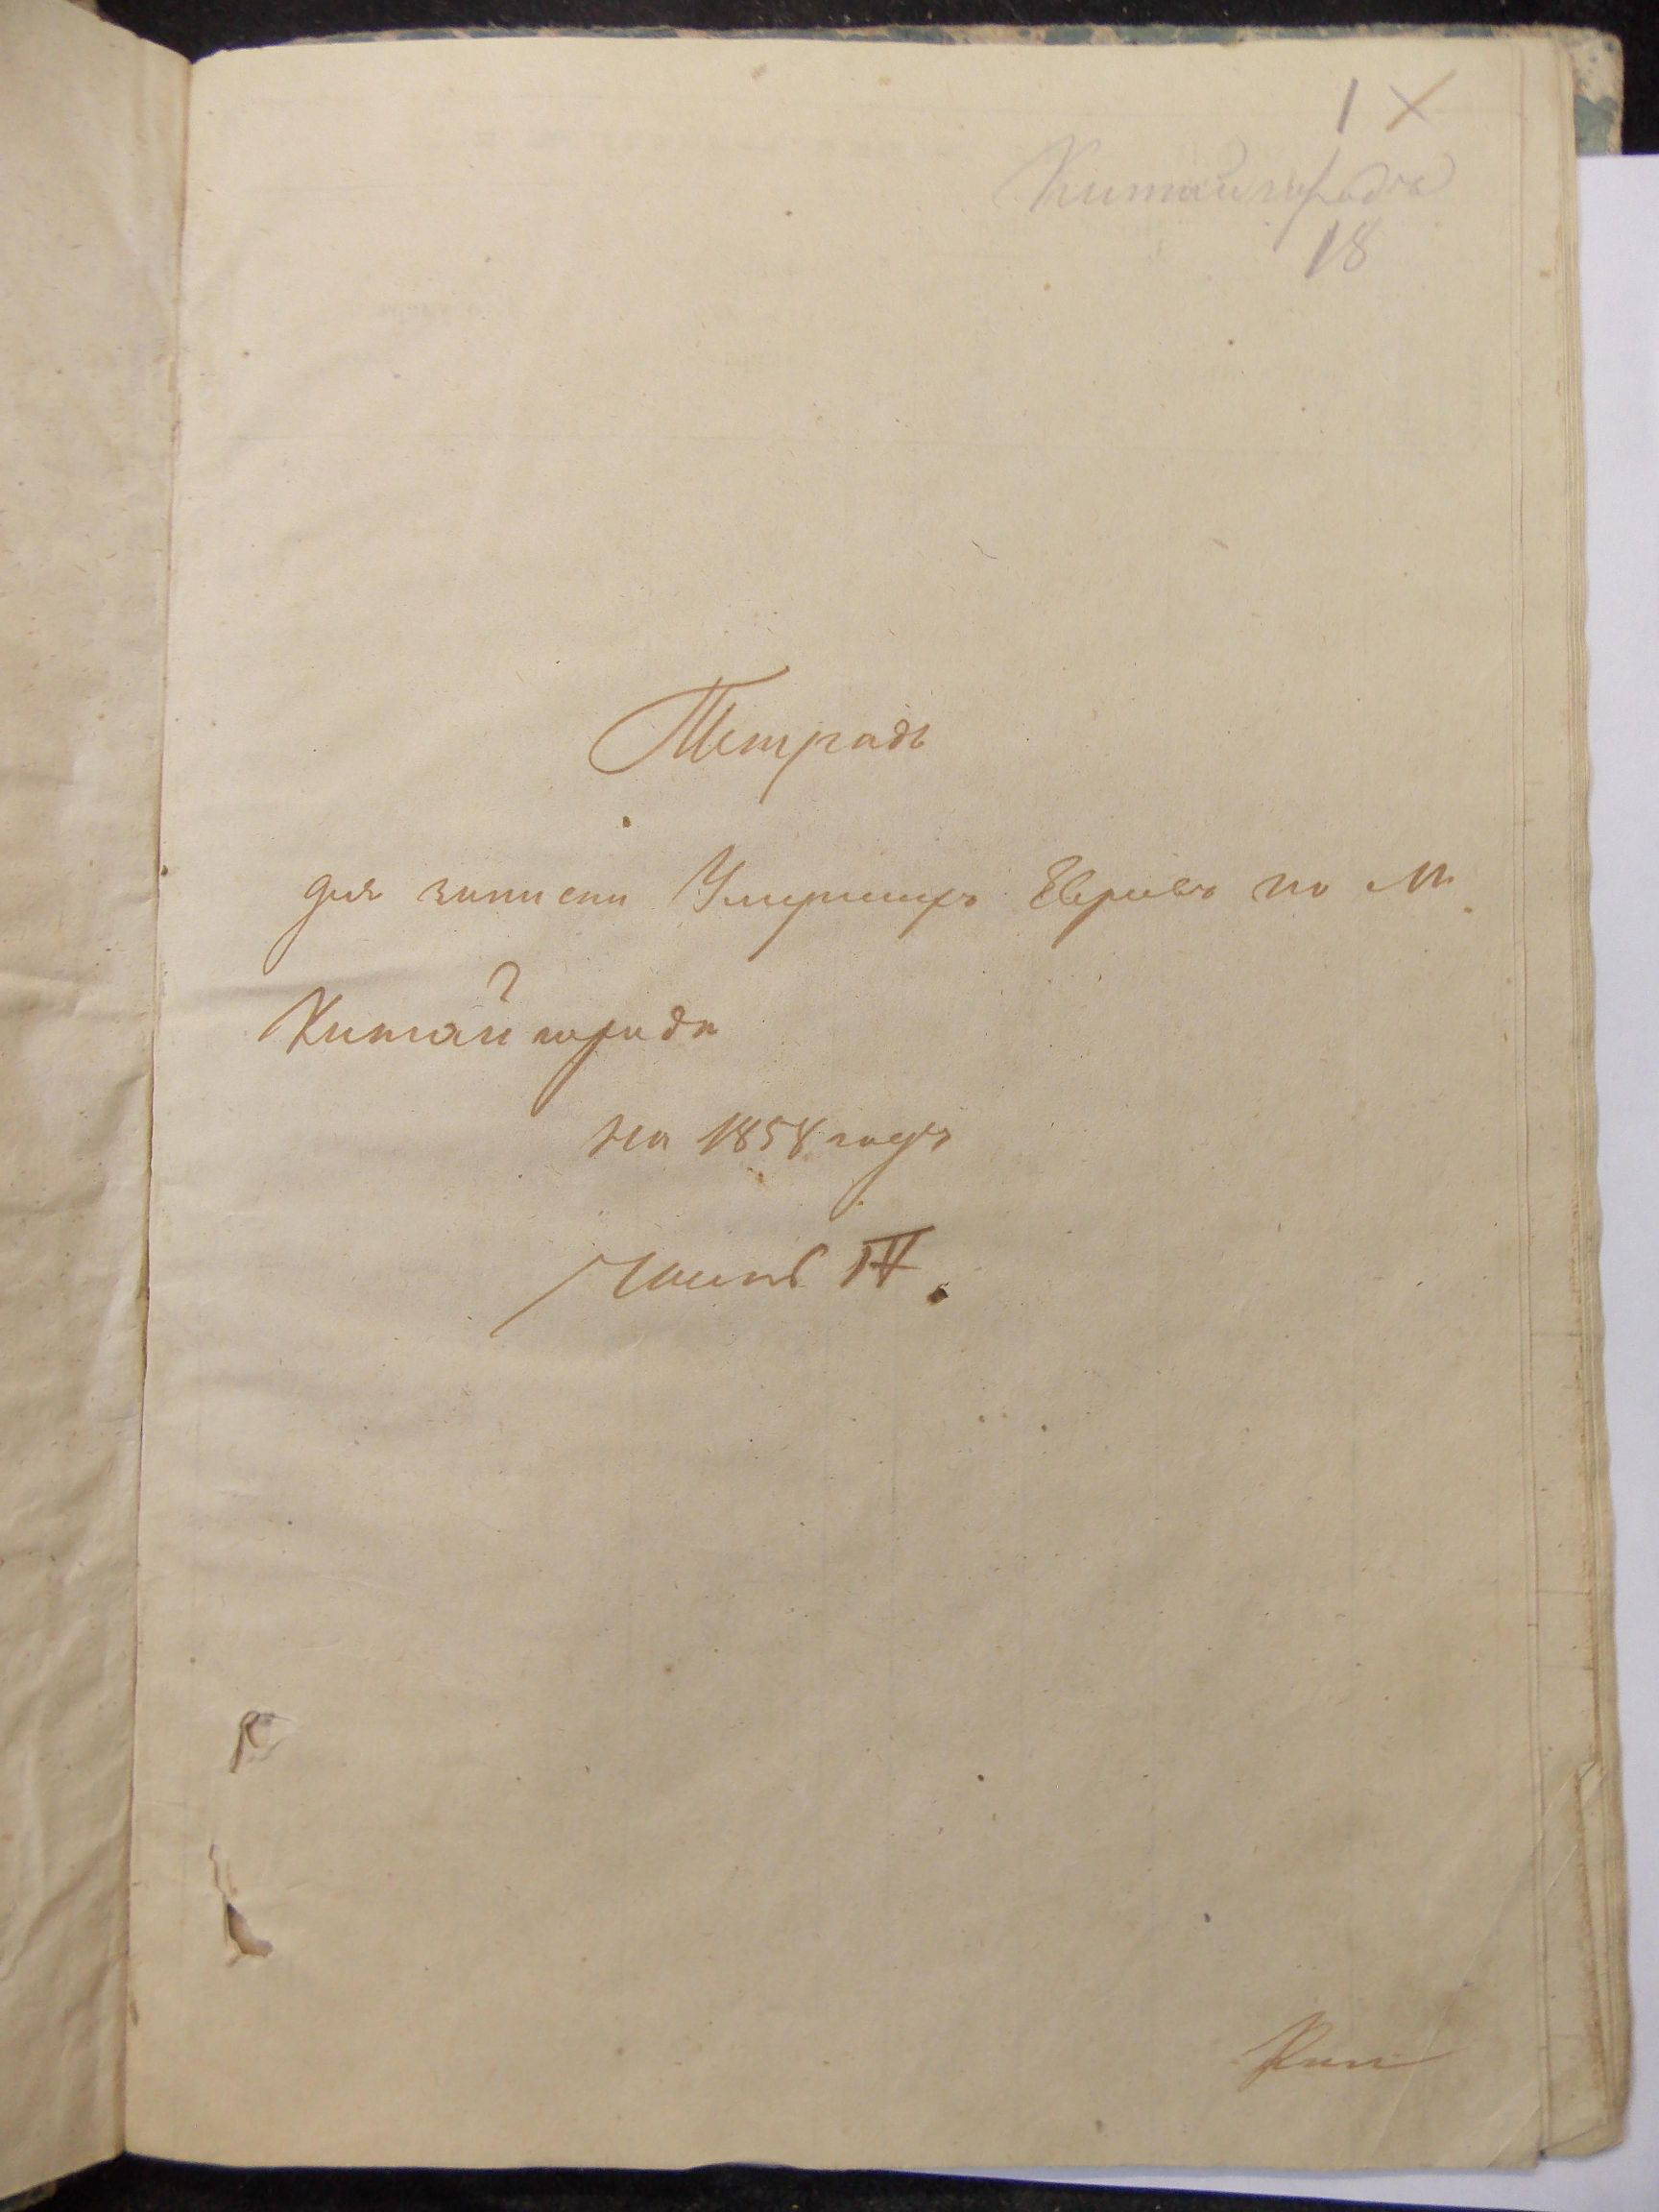 1 ×
Китайгородъ
18
Тетрадь
для записки Умершихъ Евреевъ по М.
Китайгорода
на 1858 годъ
Часть IV.